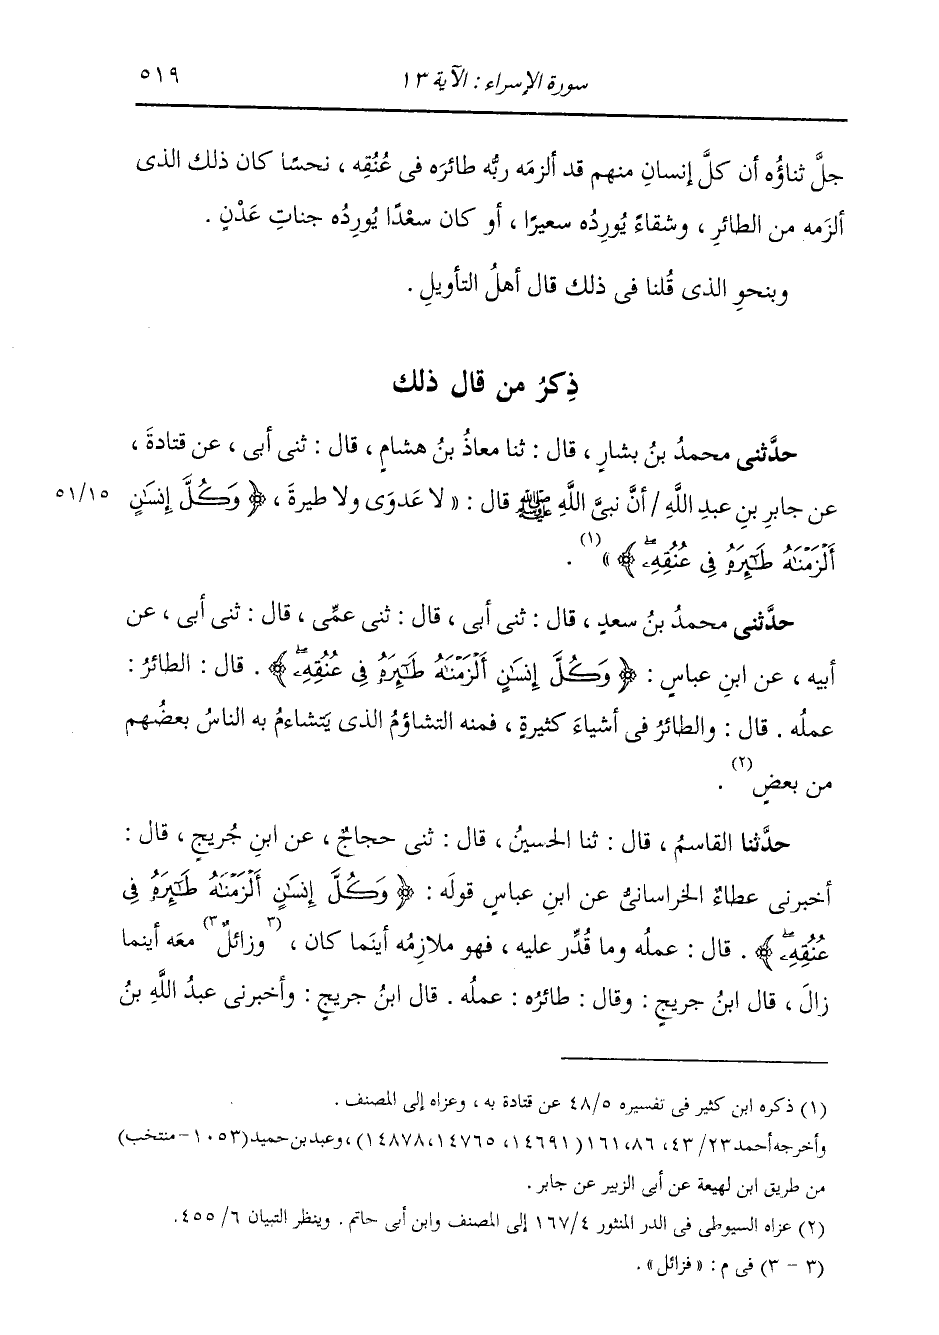 سورة الإسراء : الآية ١٣ ٥١٩
جلَّ ثناؤُه أن كلَّ إنسانٍ منهم قد ألزمَه ربُّه طائرَه فى عُنُقِه ، نحسًا كان ذلك الذى
ألزَمه من الطائرِ ، وشقاءً يُورِدُه سعيرًا ، أو كان سعْدًا يُورِدُه جناتِ عَدْنٍ .
وبنحوِ الذى قُلنا فى ذلك قال أهلُ التأويلِ .
ذِكرُ من قال ذلك
حدَّثنى محمدُ بنُ بشارٍ ، قال : ثنا معاذُ بنُ هشامٍ ، قال : ثنى أبى ، عن قتادةَ ،
عن جابرِ بنِ عبدِ اللَّهِ / أنَّ نبىَّ اللَّهِ ﷺ قال : « لا عَدوَى ولا طيرةَ ، ﴿ وَكُلَّ إِنسَٰنٍ ٥١/١٥
أَلْزَمْنَٰهُ طَٰٓئِرَهُۥ فِى عُنُقِهِۦۖ ﴾ »(١) .
حدَّثنى محمدُ بنُ سعدٍ ، قال : ثنى أبى ، قال : ثنى عمِّى ، قال : ثنى أبى ، عن
أبيه ، عن ابنِ عباسٍ : ﴿ وَكُلَّ إِنسَٰنٍ أَلْزَمْنَٰهُ طَٰٓئِرَهُۥ فِى عُنُقِهِۦۖ ﴾ . قال : الطائرُ :
عملُه . قال : والطائرُ فى أشياءَ كثيرةٍ ، فمنه التشاؤمُ الذى يَتشاءمُ به الناسُ بعضُهم
من بعضٍ(٢) .
حدَّثنا القاسمُ ، قال : ثنا الحسينُ ، قال : ثنى حجاجٌ ، عن ابنِ جُريجٍ ، قال :
أخبرنى عطاءٌ الخراسانىُّ عن ابنِ عباسٍ قولَه : ﴿ وَكُلَّ إِنسَٰنٍ أَلْزَمْنَٰهُ طَٰٓئِرَهُۥ فِى
عُنُقِهِۦۖ ﴾ . قال : عملُه وما قُدِّر عليه ، فهو ملازِمُه أينَما كان ، (٣وزائلٌ٣) معَه أينما
زالَ ، قال ابنُ جريجٍ : وقال : طائرُه : عملُه . قال ابنُ جريجٍ : وأخبرنى عبدُ اللَّهِ بنُ
(١) ذكره ابن كثير فى تفسيره ٤٨/٥ عن قتادة به ، وعزاه إلى المصنف .
وأخرجه أحمد ٤٣/٢٣، ٨٦، ١٦١ (١٤٦٩١، ١٤٧٦٥، ١٤٨٧٨) ، وعبد بن حميد (١٠٥٣ - منتخب)
من طريق ابن لهيعة عن أبى الزبير عن جابر .
(٢) عزاه السيوطى فى الدر المنثور ١٦٧/٤ إلى المصنف وابن أبى حاتم . وينظر التبيان ٤٥٥/٦ .
(٣ - ٣) فى م : « فزائل » .